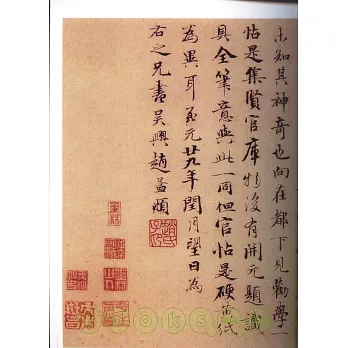 未知其神奇也向在都下見勸學一
帖是集賢官庫物後有開元題識
具全筆意與此一同但官帖是硬黃紙
為異耳至元廿九年閏月望日為
右之兄書吳興趙孟頫
趙氏子昂